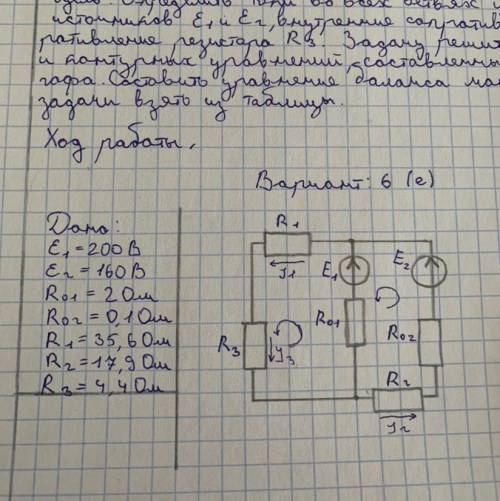 источников E1 и E2, внутренние сопротив
ративление резистора R3. Задачу решит
и контурных уравнений, составленны
гофа. Составить уравнение баланса мощ
задачи взять из таблицы.
Ход работы.
Вариант: 6 (е)
Дано:
E1 = 200 В
E2 = 160 В
R01 = 2 Ом
R02 = 0,1 Ом
R1 = 35,6 Ом
R2 = 17,9 Ом
R3 = 4,4 Ом
R1
I1
E1
E2
R01
R02
R3
I3
R2
I2